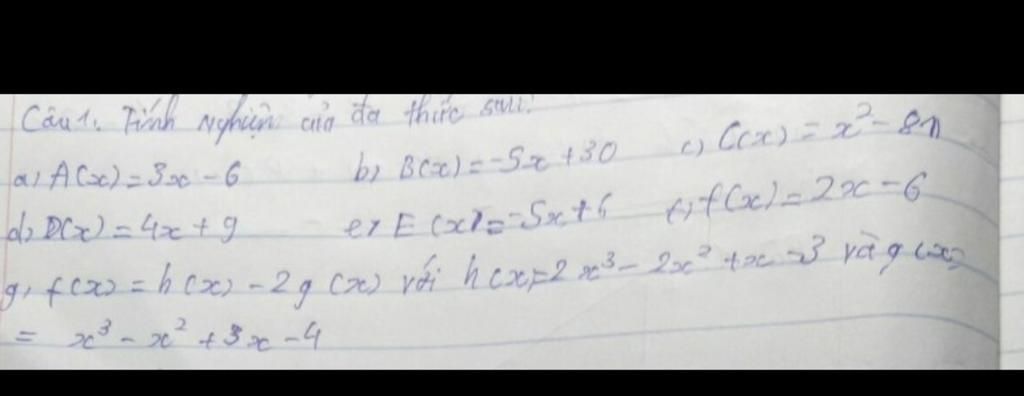 Câu 1. Tính nghiệm của đa thức sau:
a, A(x) = 3x - 6 b, B(x) = -5x + 30 c, C(x) = x² - 81
d, D(x) = 4x + 9 e, E(x) = -5x + 6 f, f(x) = 2x - 6
g, f(x) = h(x) - 2g(x) với h(x) = 2x³ - 2x² + x - 3 và g(x)
= x³ - x² + 3x - 4